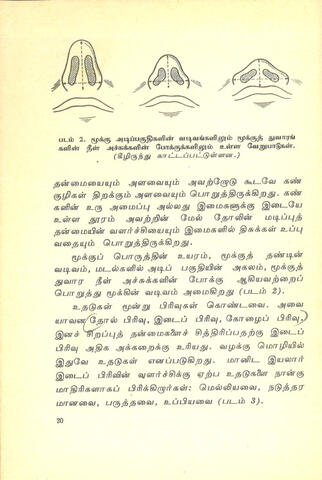 படம் 2. மூக்கு அடிப்பகுதிகளின் வடிவங்களிலும் மூக்குத் துவாரங்
களின் நீள் அச்சுக்களின் போக்குகளிலும் உள்ள வேறுபாடுகள்.
(கீழிருந்து காட்டப்பட்டுள்ளன.)
தன்மையையும் அளவையும் அவற்றோடு கூடவே கண்
குழிகள் திறக்கும் அளவையும் பொறுத்திருக்கிறது. கண்
களின் உரு அமைப்பு அல்லது இமைகளுக்கு இடையே
உள்ள தூரம் அவற்றின் மேல் தோலின் மடிப்புத்
தன்மையின் வளர்ச்சியையும் இமைகளில் திசுக்கள் உப்பு
வதையும் பொறுத்திருக்கிறது.
மூக்குப் பொருத்தின் உயரம், மூக்குத் தண்டின்
வடிவம், மடல்களின் அடிப் பகுதியின் அகலம், மூக்குத்
துவார நீள் அச்சுக்களின் போக்கு ஆகியவற்றைப்
பொறுத்து மூக்கின் வடிவம் அமைகிறது (படம் 2).
உதடுகள் மூன்று பிரிவுகள் கொண்டவை. அவை
யாவன தோல் பிரிவு, இடைப் பிரிவு, கோழைப் பிரிவு,
இனச் சிறப்புத் தன்மைகளைச் சித்திரிப்பதற்கு இடைப்
பிரிவு அதிக அக்கறைக்கு உரியது. வழக்கு மொழியில்
இதுவே உதடுகள் எனப்படுகிறது. மானிட இயலார்
இடைப் பிரிவின் வளர்ச்சிக்கு ஏற்ப உதடுகளை நான்கு
மாதிரிகளாகப் பிரிக்கிறர்கள்: மெல்லியவை, நடுத்தர
மானவை, பருத்தவை, உப்பியவை (படம் 3).
20